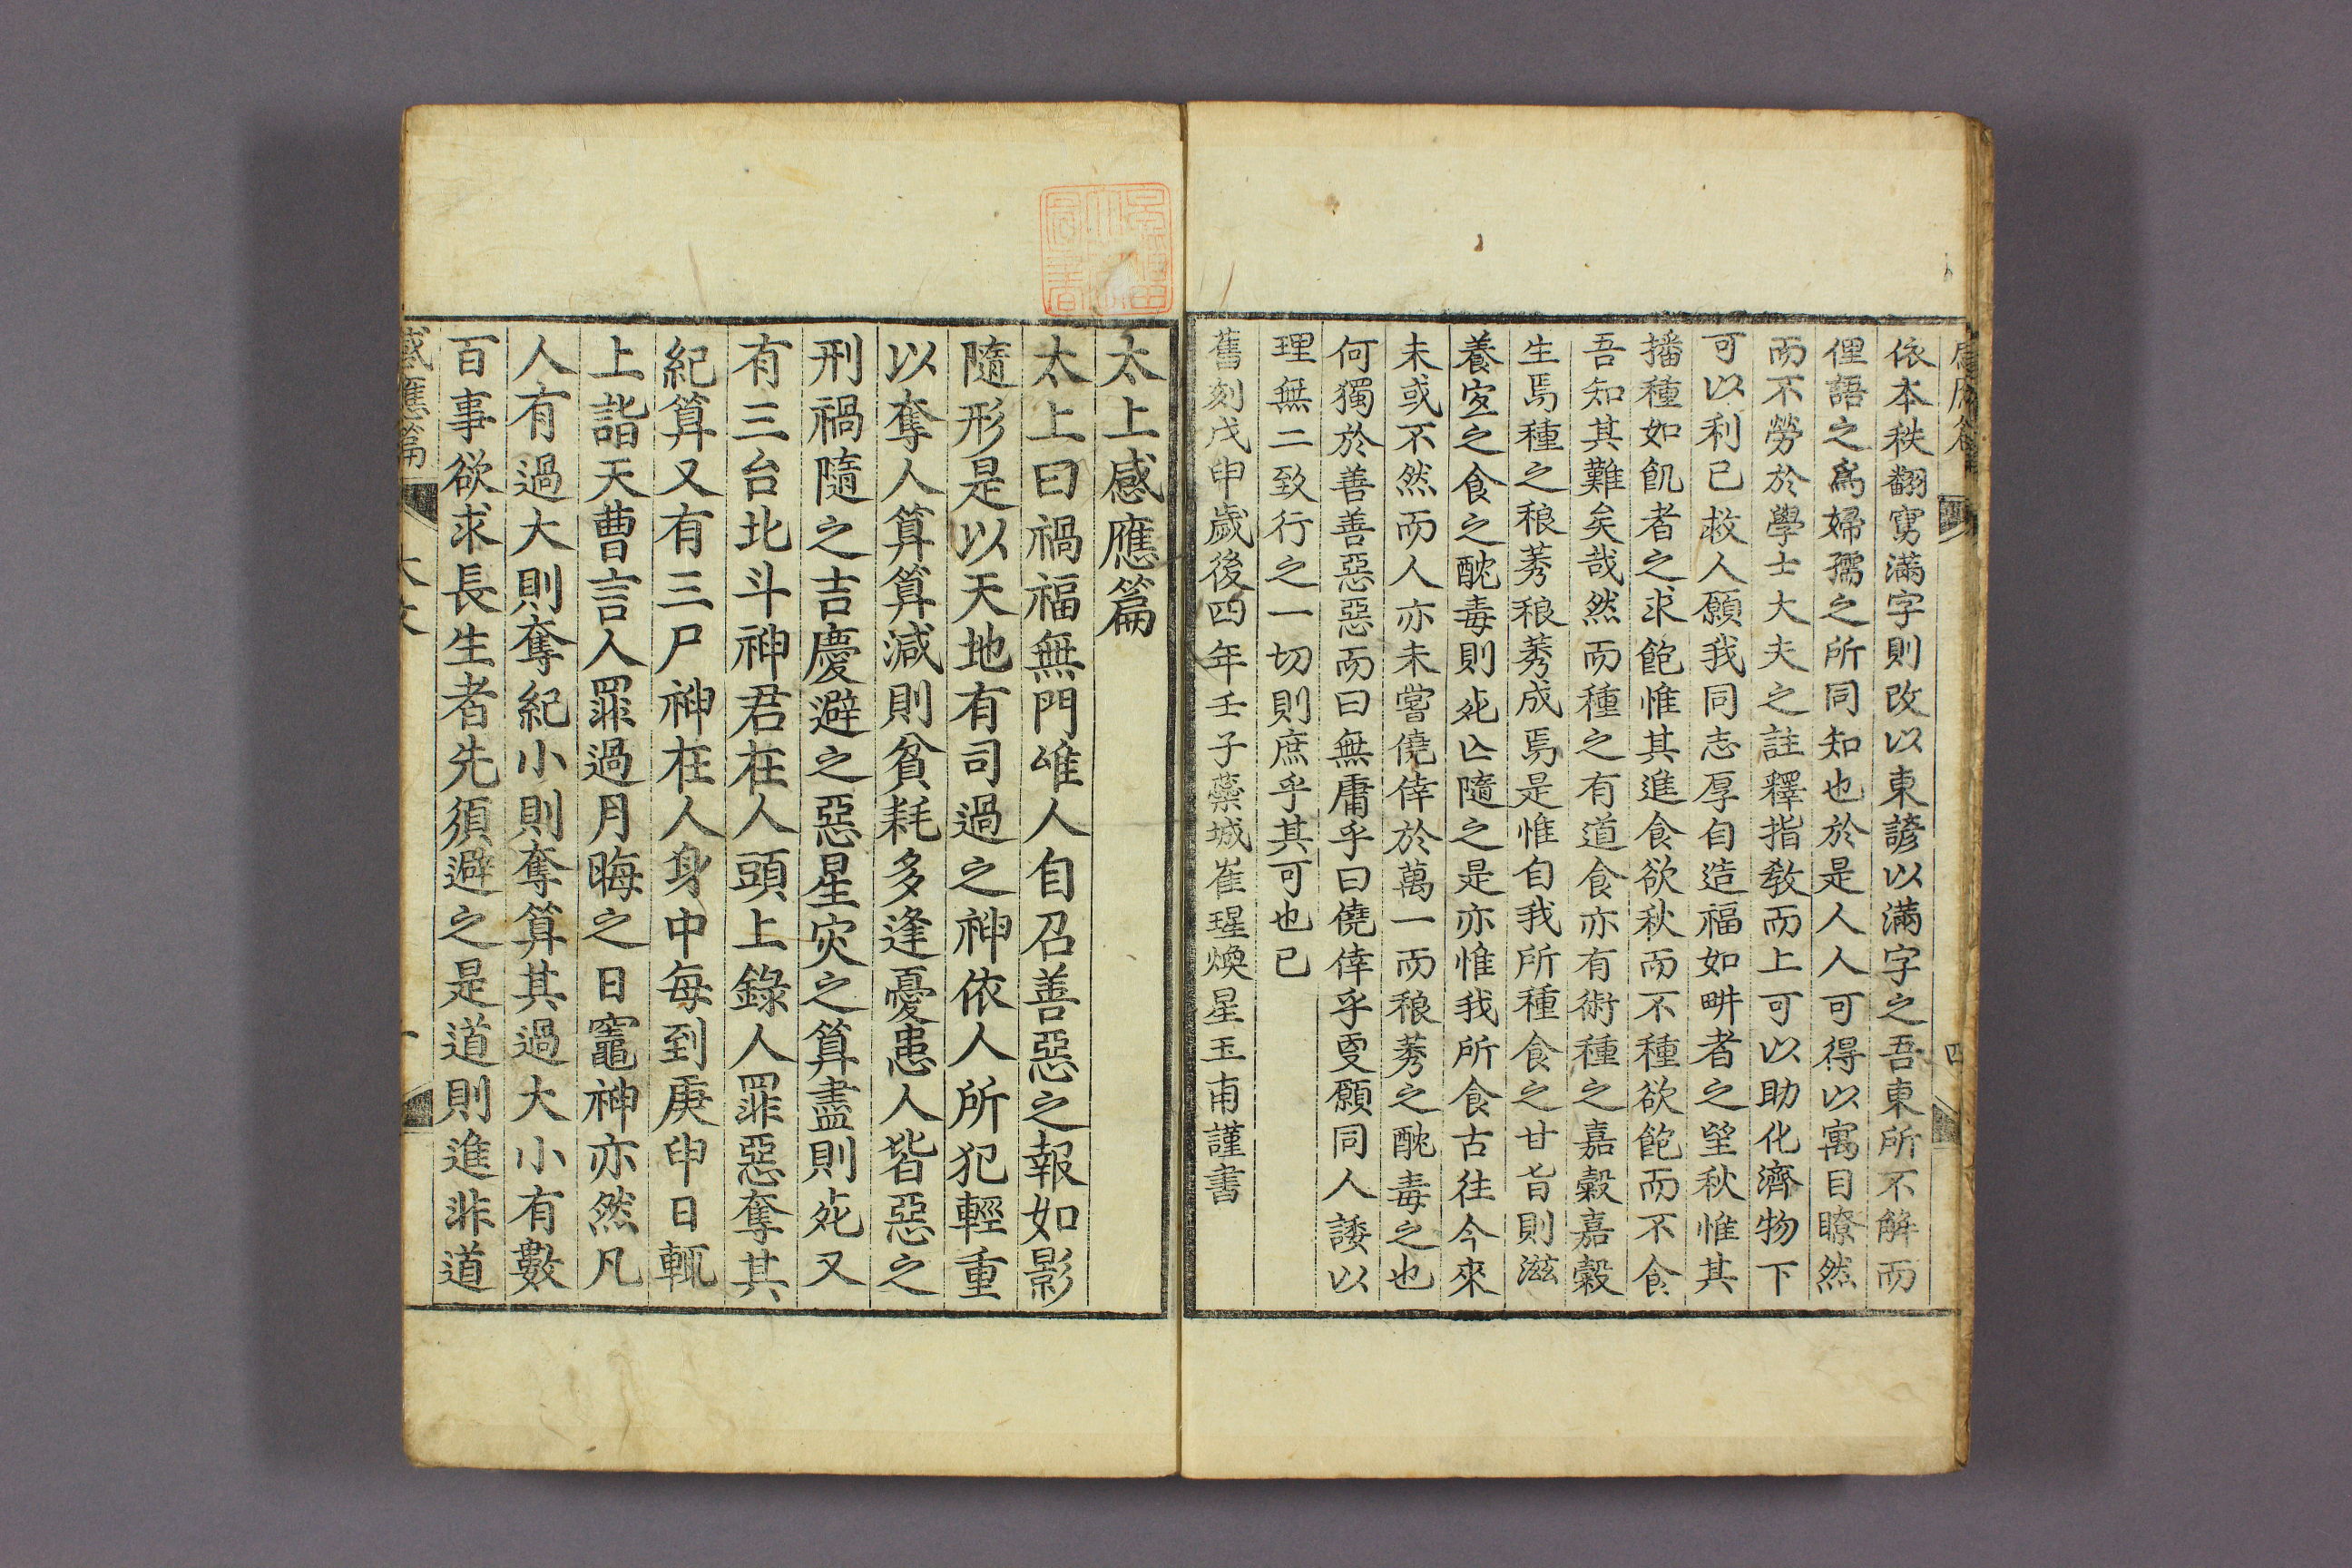 依本秩翻寫滿字則改以東諺以滿字之吾東所不解而
俚語之爲婦孺之所同知也於是人人可得以寓目瞭然
而不勞於學士大夫之註釋指敎而上可以助化濟物下
可以利已救人願我同志厚自造福如畊者之望秋惟其
播種如飢者之求飽惟其進食欲秋而不種欲飽而不食
吾知其難矣哉然而種之有道食亦有術種之嘉糓嘉糓
生焉種之稂莠稂莠成焉是惟自我所種食之甘旨則滋
養㝎之食之酖毒則死亾隨之是亦惟我所食古往今來
未或不然而人亦未嘗僥倖於萬一而稂莠之酖毒之也
何獨於善善惡惡而曰無庸乎曰僥倖乎更願同人諉以
理無二致行之一切則庶乎其可也已
舊刻戊申歲後四年壬子藥城崔瑆煥星玉甫謹書
太上感應篇
太上曰禍福無門唯人自召善惡之報如影
隨形是以天地有司過之神依人所犯輕重
以奪人算算減則貧耗多逢憂患人皆惡之
刑禍隨之吉慶避之惡星灾之算盡則死又
有三台北斗神君在人頭上錄人罪惡奪其
紀算又有三尸神在人身中每到庚申日輒
上詣天曹言人罪過月晦之日竈神亦然凡
人有過大則奪紀小則奪算其過大小有數
百事欲求長生者先須避之是道則進非道
感應篇